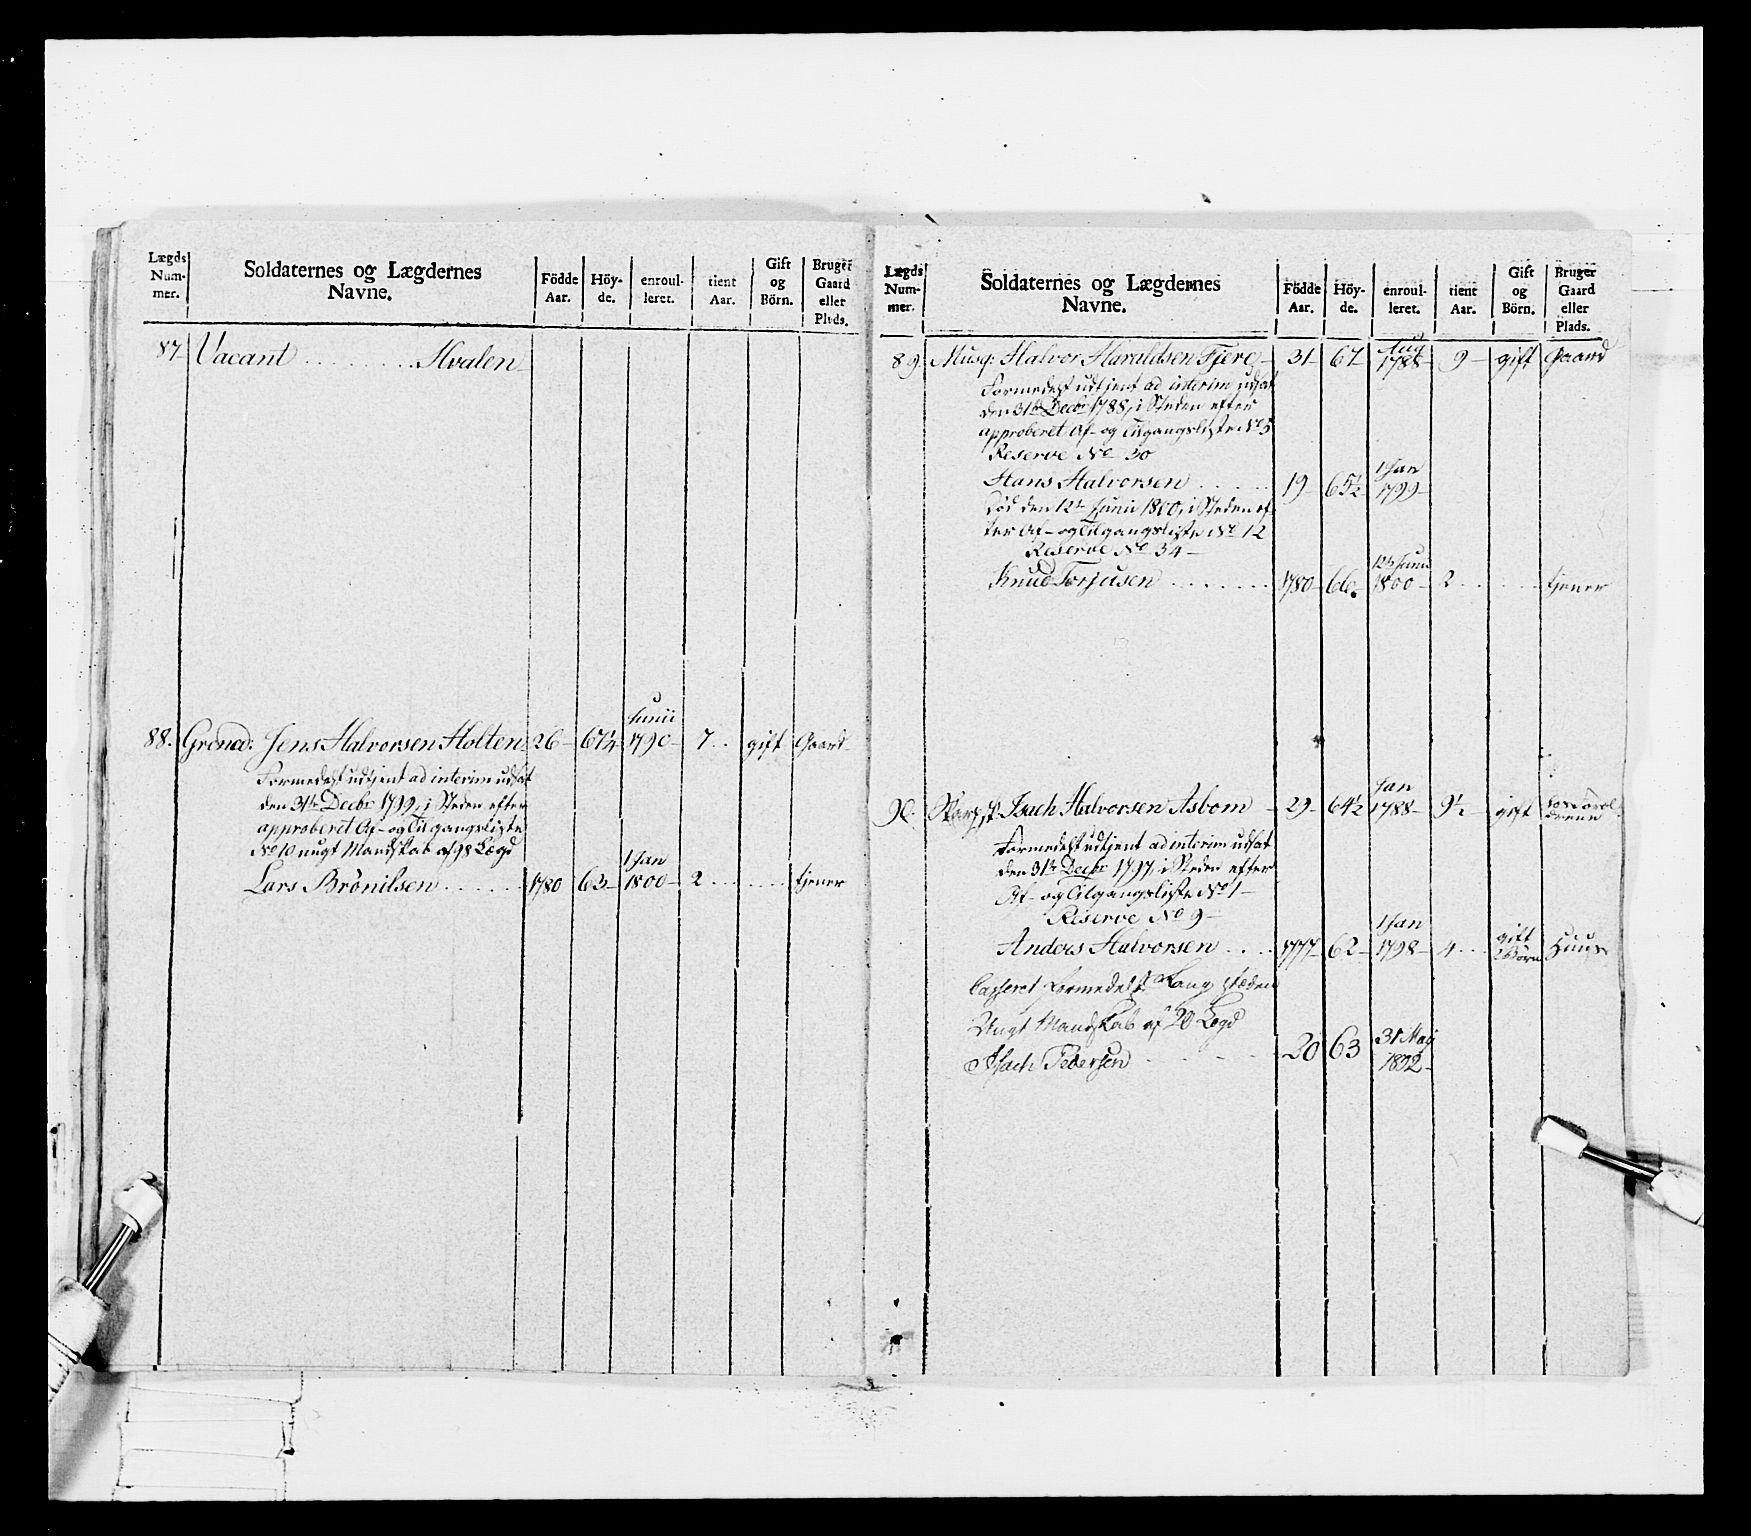 Lægds Num- mer. Soldaternes og Lægdernes Navne. Födde Aar. Höy- de. enroul- leret. tient Aar. Gift og Börn. Bruger Gaard eller Plads.
87. Vacant ........ Hvalen
Junii
88. Grenad: Jens Halvorsen Holten 26 - 67¼ 1790 - 7 .. gift Gaard
Formedelst udtjent ad interim udsat
den 31te Decbr 1799, i Steden efter
approberet Af- og Tilgangsliste
No 10 ungt Mandskab af 98 Lægd
1 Jan
Lars Brönilsen ...... 1780 63 - 1800 - 2 ...... tjener
Lægds Num- mer. Soldaternes og Lægdernes Navne. Födde Aar. Höy- de. enroul- leret. tient Aar. Gift og Börn. Bruger Gaard eller Plads.
Aug
89. Musq: Halvor Haraldsen Fjere - 31 - 67 - 1788 - 9 - gift Gaard
Formedelst udtjent ad interim udsat
den 31te Decbr 1788, i Steden efter
approberet Af- og Tilgangsliste No 5
Reserve No 30
1 Jan
Hans Halvorsen ..... 19 - 65½ 1799 -
Död den 12te Junii 1800, i Steden ef-
ter Af- og Tilgangsliste No 12
Reserve No 34 -
12te Junii
Knud Torjusen ....... 1780 - 66. 1800 - 2 ..... tjener
Jan
90. Isach Halvorsen Asbom - 29 - 64½ 1788 - 9½ - gift
Formedelst udtjent ad interim udsat
den 31te Decbr 1797, i Steden efter
Af- og Tilgangsliste No 1 -
Reserve No 9 -
1 Jan
Anders Halvorsen .... 1777 - 62 - 1798 - 4 ... gift 2 Börn Huus
Casseret formedelst i Steden
Ungt Mandskab af 20 Lægd
31 Maj
Isach Pedersen ..... 20 63 1802 -